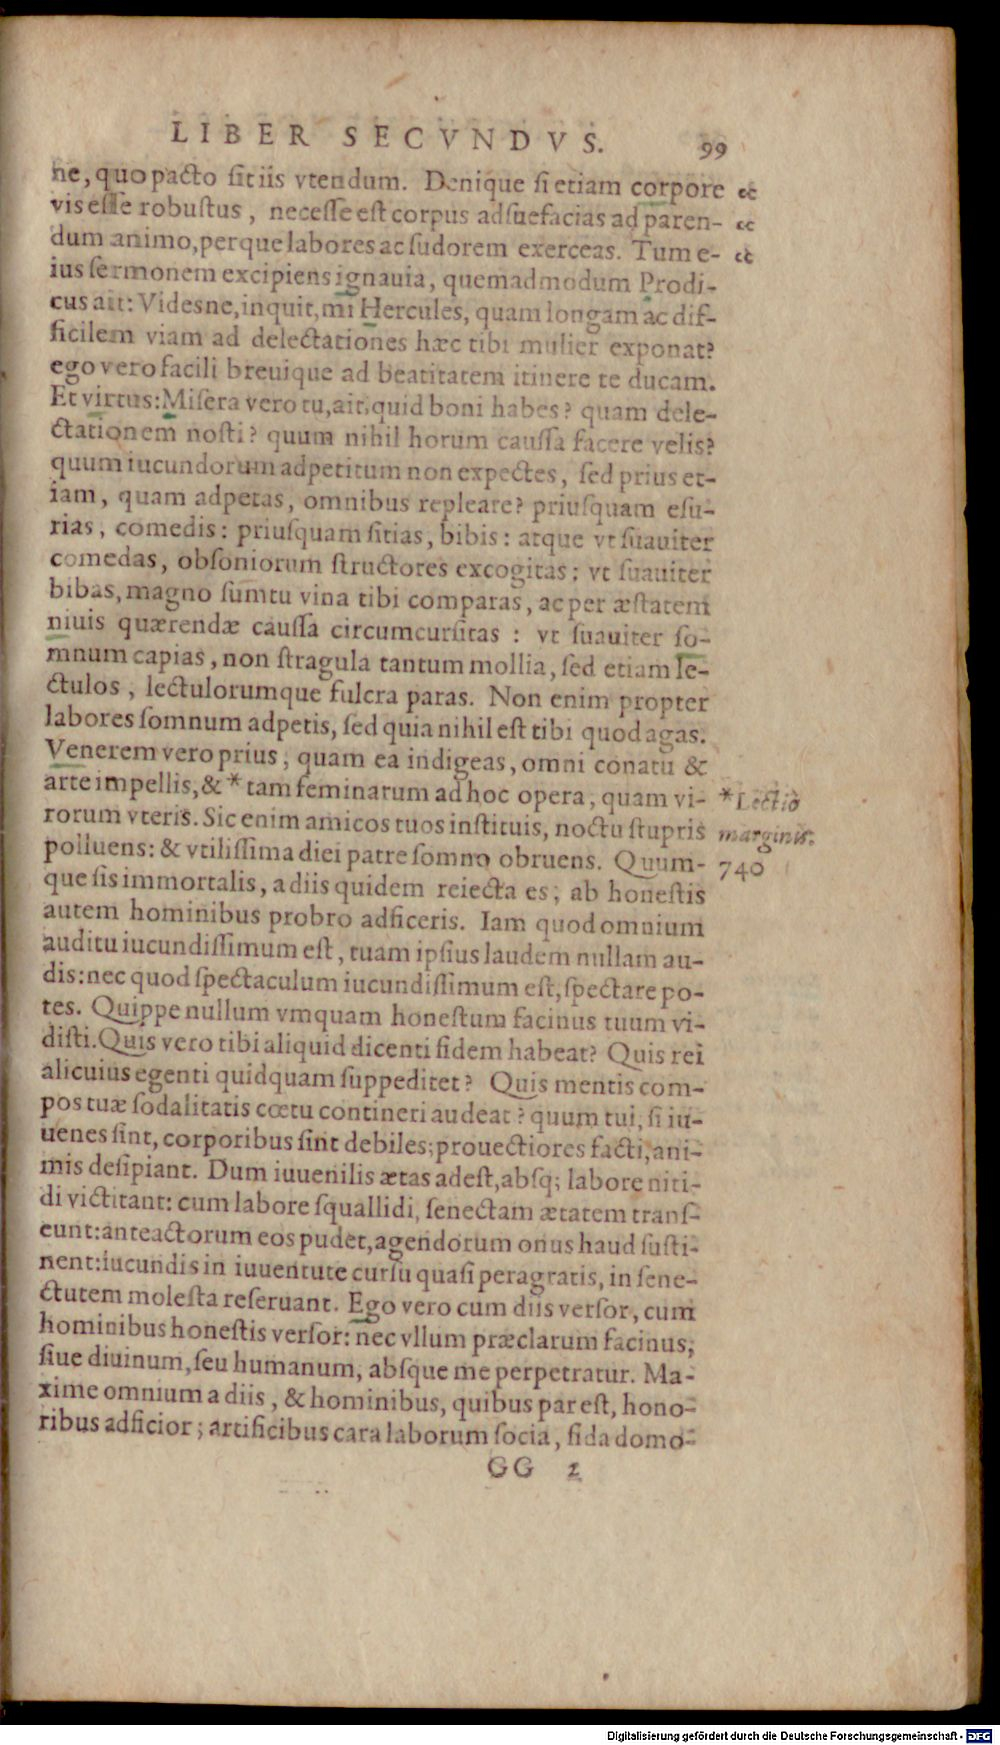 LIBER SECVNDVS. 99
ne, quo pacto sit iis vtendum. Denique si etiam corpore
vis esse robustus, necesse est corpus adsuefacias ad paren-
dum animo, perque labores ac sudorem exerceas. Tum e-
ius sermonem excipiens ignauia, quemadmodum Prodi-
cus ait: Videsne, inquit, mi Hercules, quam longam ac dif-
ficilem viam ad delectationes hæc tibi mulier exponat?
ego vero facili breuique ad beatitatem itinere te ducam.
Et virtus: Misera vero tu, ait, quid boni habes? quam dele-
ctationem nosti? quum nihil horum caussa facere velis?
quum iucundorum adpetitum non expectes, sed prius et-
iam, quam adpetas, omnibus repleare? priusquam esu-
rias, comedis: priusquam sitias, bibis: atque vt suauiter
comedas, obsoniorum structores excogitas; vt suauiter
bibas, magno sumtu vina tibi comparas, ac per æstatem
niuis quærendæ caussa circumcursitas: vt suauiter so-
mnum capias, non stragula tantum mollia, sed etiam le-
ctulos, lectulorumque fulcra paras. Non enim propter
labores somnum adpetis, sed quia nihil est tibi quod agas.
Venerem vero prius, quam ea indigeas, omni conatu &
arte impellis, & * tam feminarum ad hoc opera, quam vi-
*Lectio
rorum vteris. Sic enim amicos tuos instituis, noctu stupris
marginis.
polluens: & vtilissima diei patre somno obruens. Quum-
740
que sis immortalis, a diis quidem reiecta es; ab honestis
autem hominibus probro adficeris. Iam quod omnium
auditu iucundissimum est, tuam ipsius laudem nullam au-
dis: nec quod spectaculum iucundissimum est, spectare po-
tes. Quippe nullum vmquam honestum facinus tuum vi-
disti. Quis vero tibi aliquid dicenti fidem habeat? Quis rei
alicuius egenti quidquam suppeditet? Quis mentis com-
pos tuæ sodalitatis cœtu contineri audeat? quum tui, si iu-
uenes sint, corporibus sint debiles; prouectiores facti, ani-
mis desipiant. Dum iuuenilis ætas adest, absq; labore niti-
di victitant: cum labore squallidi, senectam ætatem trans-
eunt: anteactorum eos pudet, agendorum onus haud susti-
nent: iucundis in iuuentute cursu quasi peragratis, in sene-
ctutem molesta reseruant. Ego vero cum diis versor, cum
hominibus honestis versor: nec vllum præclarum facinus,
siue diuinum, seu humanum, absque me perpetratur. Ma-
xime omnium a diis, & hominibus, quibus par est, hono-
ribus adficior; artificibus cara laborum socia, fida domo-
GG 2
Digitalisierung gefördert durch die Deutsche Forschungsgemeinschaft - DFG